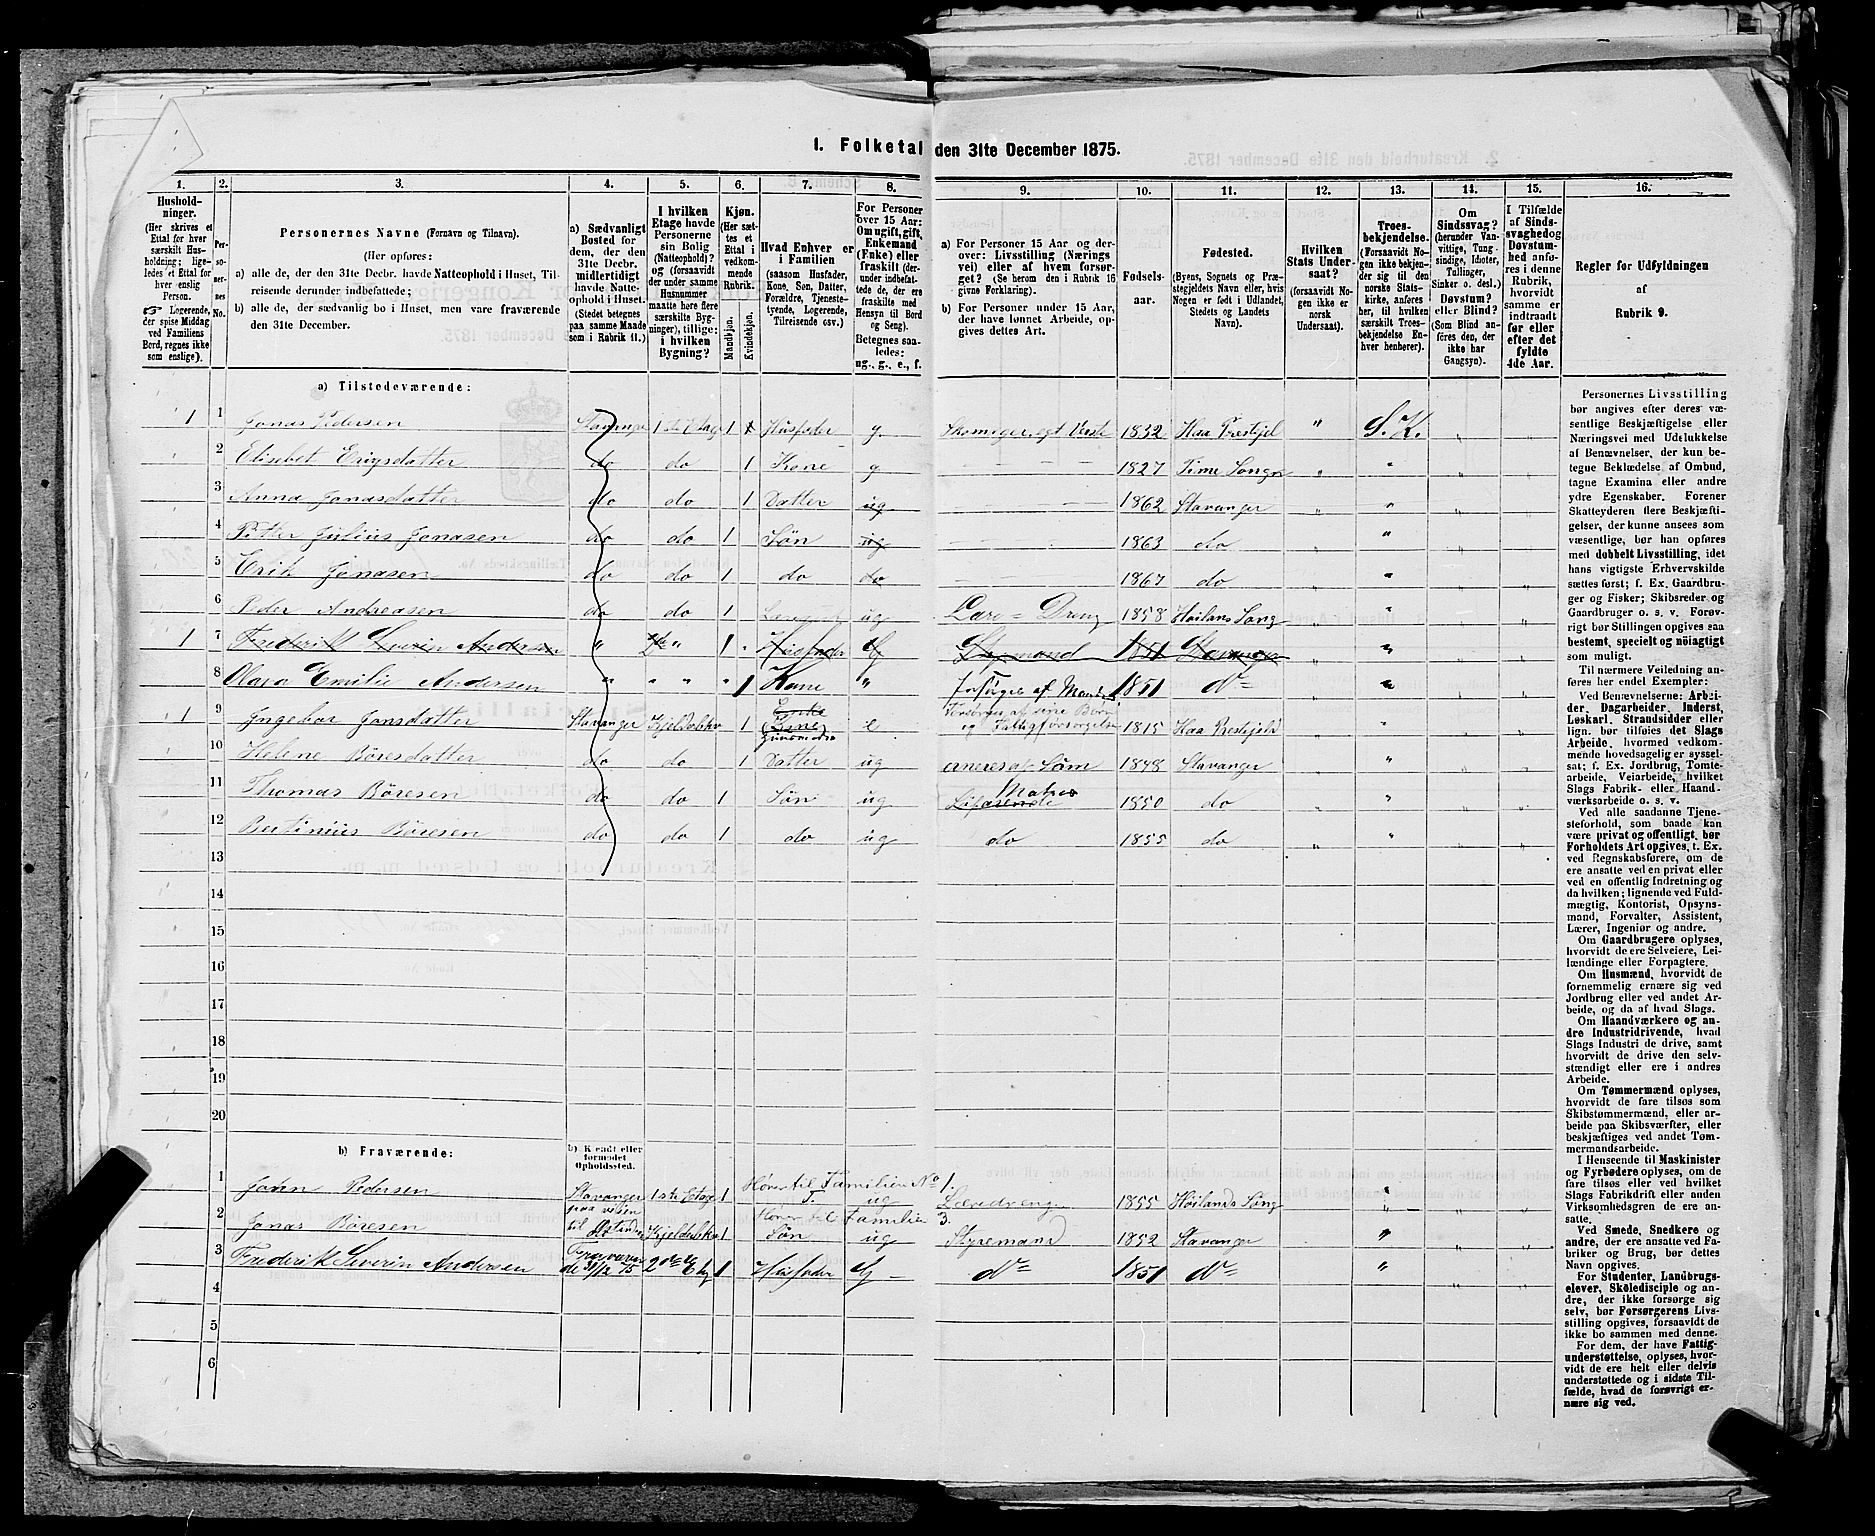 1. Folketal den 31te December 1875.
1. 2. 3. 4. 5. 6. 7. 8. 9. 10. 11. 12. 13. 14. 15. 16.
Hushold-
ninger.
(Her skrives et
Ettal for hver
særskilt Hus-
holdning; lige-
ledes et Ettal for
hver enslig
Person.
☞ Logerende,
der spise Middag
ved Familiens
Bord, regnes ikke
som enslige).
Per-
soner-
nes
No.
Personernes Navne (Fornavn og Tilnavn).
(Her opføres:
a) alle de, der den 31te Decbr. havde Natteophold i Huset, Til-
reisende derunder indbefattede;
b) alle de, der sædvanlig bo i Huset, men vare fraværende
den 31te December.
a) Sædvanligt
Bosted for
dem, der den
31te Decbr.
midlertidigt
havde Natte-
ophold i Huset.
(Stedet betegnes
paa samme Maade
som i Rubrik 11.)
I hvilken
Etage havde
Personerne
sin Bolig
(Natteophold)?
og (forsaavidt
der under samme
Husnummer
maatte høre flere
særskilte Byg-
ninger), tillige:
i hvilken
Bygning?
Kjøn.
(Her sæt-
tes et
Ettal i
vedkom-
mende
Rubrik.
Mandkjøn.
Kvindekjøn.
Hvad Enhver er
i Familien
(saasom Husfader,
Kone, Søn, Datter,
Forældre, Tjeneste-
tyende, Logerende,
Tilreisende osv.)
For Personer
over 15 Aar:
Om ugift, gift,
Enkemand
(Enke) eller
fraskilt (der-
under indbefat-
tede de, der ere
fraskilte med
Hensyn til Bord
og Seng).
Betegnes saa-
ledes:
ug., g., e., f.
a) For Personer 15 Aar og der-
over: Livsstilling (Nærings
vei) eller af hvem forsør-
get? (Se herom den i Rubrik 16
givne Forklaring).
b) For Personer under 15 Aar,
der have lønnet Arbeide, op-
gives dettes Art.
Fødsels-
aar.
Fødested.
(Byens, Sognets og Præ-
stegjeldets Navn eller, hvis
Nogen er født i Udlandet,
Stedets og Landets
Navn).
Hvilken
Stats Under-
saat?
(forsaavidt No-
gen ikke er
norsk
Undersaat).
Troes-
bekjendelse.
(Forsaavidt No-
gen ikke bekjen-
der sig til den
norske Stats-
kirke, anføres
her, til hvilken
særskilt Troes-
bekjendelse En-
hver henhører).
Om
Sindssvag?
(herunder Van-
vittige, Tung-
sindige, Idioter,
Tullinger,
Sinker o. desl.)
Døvstum?
eller Blind?
(Som Blind an-
føres den, der
ikke har
Gangsyn).
I Tilfælde
af Sinds-
svaghed og
Døvstum-
hed anfø-
res i denne
Rubrik,
hvorvidt
samme er
indtraadt
før eller
efter det
fyldte
4de Aar.
Regler for Udfyldningen
af
Rubrik 9.
a) Tilstedeværende:
1 1 Jonas Pedersen Stavanger 1ste Etage 1 Husfader g. 1832 Haa Prestejel " S.K. "
2 Elisebet Erigsdatter do do 1 Kone g 1827 Time Songn " " "
3 Anna Jonasdatter do do 1 Datter ug 1862 Stavanger " " "
4 Petter Julius Jonasen do do 1 Søn ug 1863 do "
5 Erik Jonasen do do 1 do do 1867 do "
6 Peder Andreasen do do 1 ug Lære=Dreng 1858 Høilans Song "
1 7 Frederik Severin Andersen " " 1 Husfader G 1851 Stavanger " "
8 Olava Emilie Andersen " " " " 1 Kone " forsørges af Manden 1851 Do "
1 9 Ingebor Jonsdatter Stavanger 1 Enke e Forsørges af sine Børn
og Fattigforsørgelse 1815 Haa Prestejeld "
10 Helene Børesdatter do do 1 Datter ug 1848 Stavanger "
11 Thomas Børesen do do 1 Søn ug Matros 1850 do "
12 Bertinius Børesen do do 1 do ug do 1855 do "
13
14
15
16
17
18
19
20
b) Fraværende:
b) Kjendt eller
formodet
Opholdssted.
1 John Pedersen Stavanger 1ste Etage 1 Hører til Familien No 1. ug Læredreng 1855 Høilands Song "
2 Jonas Børesen paa reisen
til Ostindien 1 Hører til Familien 3. Søn ug Styrmand 1852 Stavanger "
3 Frederik Severin Andersen Fraværen
de 31/12 75 2den Etg 1 Husfader G Do 1851 Do "
4
5
6
Personernes Livsstilling
bør angives efter deres væ-
sentlige Beskjæftigelse eller
Næringsvei med Udelukkelse
af Benævnelser, der kun be-
tegne Beklædelse af Ombud,
tagne Examina eller andre
ydre Egenskaber. Forener
Skatteyderen flere Beskjæfti-
gelser, der kunne ansees som
væsentlige, bør han opføres
med dobbelt Livsstilling, idet
hans vigtigste Erhvervskilde
sættes først; f. Ex. Gaardbru-
ger og Fisker; Skibsreder og
Gaardbruger o. s. v. Forøv-
rigt bør Stillingen opgives saa
bestemt, specielt og nöiagtigt
som muligt.
Til nærmere Veiledning an-
føres her endel Exempler:
Ved Benævnelserne: Arbei-
der, Dagarbeider, Inderst,
Løskarl, Strandsidder eller
lign. bør tilføies det Slags
Arbeide, hvormed vedkom-
mende hovedsagelig er syssel-
sat; f. Ex. Jordbrug, Tomte-
arbeide, Veiarbeide, hvilket
Slags Fabrik- eller Haand-
værksarbeide o. s. v.
Ved alle saadanne Tjene-
steforhold, som baade kan
være privat og offentligt, bør
Forholdets Art opgives, t. Ex.
ved Regnskabsførere, om de
ere ansatte ved en privat eller
ved en offentlig Indretning og
da hvilken; lignende ved Fuld-
mægtig, Kontorist, Opsyns-
mand, Forvalter, Assistent,
Lærer, Ingeniør og andre.
Om Gaardbrugere oplyses,
hvorvidt de ere Selveiere, Lei-
lændinge eller Forpagtere.
Om Husmænd, hvorvidt de
fornemmelig ernære sig ved
Jordbrug eller ved andet Ar-
beide, og da af hvad Slags.
Om Haandværkere og an-
dre Industridrivende, hvad
Slags Industri de drive, samt
hvorvidt de drive den selv-
stændigt eller ere i andres
Arbeide.
Om Tømmermænd oplyses,
hvorvidt de fare tilsøs som
Skibstømmermænd, eller ar-
beide paa Skibsværfter, eller
beskjæftiges ved andet Tøm-
mermandsarbeide.
I Henseende til Maskinister
og Fyrbødere oplyses, om de
fare tilsøs eller ved hvilket
Slags Fabrikdrift eller anden
Virksomhedsgren de ere an-
satte.
Ved Smede, Snedkere og
andre, der ere ansatte ved Fa-
briker og Brug, bør dettes
Navn opgives.
For Studenter, Landbrugs-
elever, Skoledisciple og an-
dre, der ikke forsørge sig
selv, bør Forsørgerens Livs-
stilling opgives, forsaavidt de
ikke bo sammen med denne.
For dem, der have Fattig-
understøttelse, oplyses, hvor-
vidt de ere helt eller delvis
understøttede og i sidste Til-
fælde, hvad de forøvrigt er-
nære sig ved.